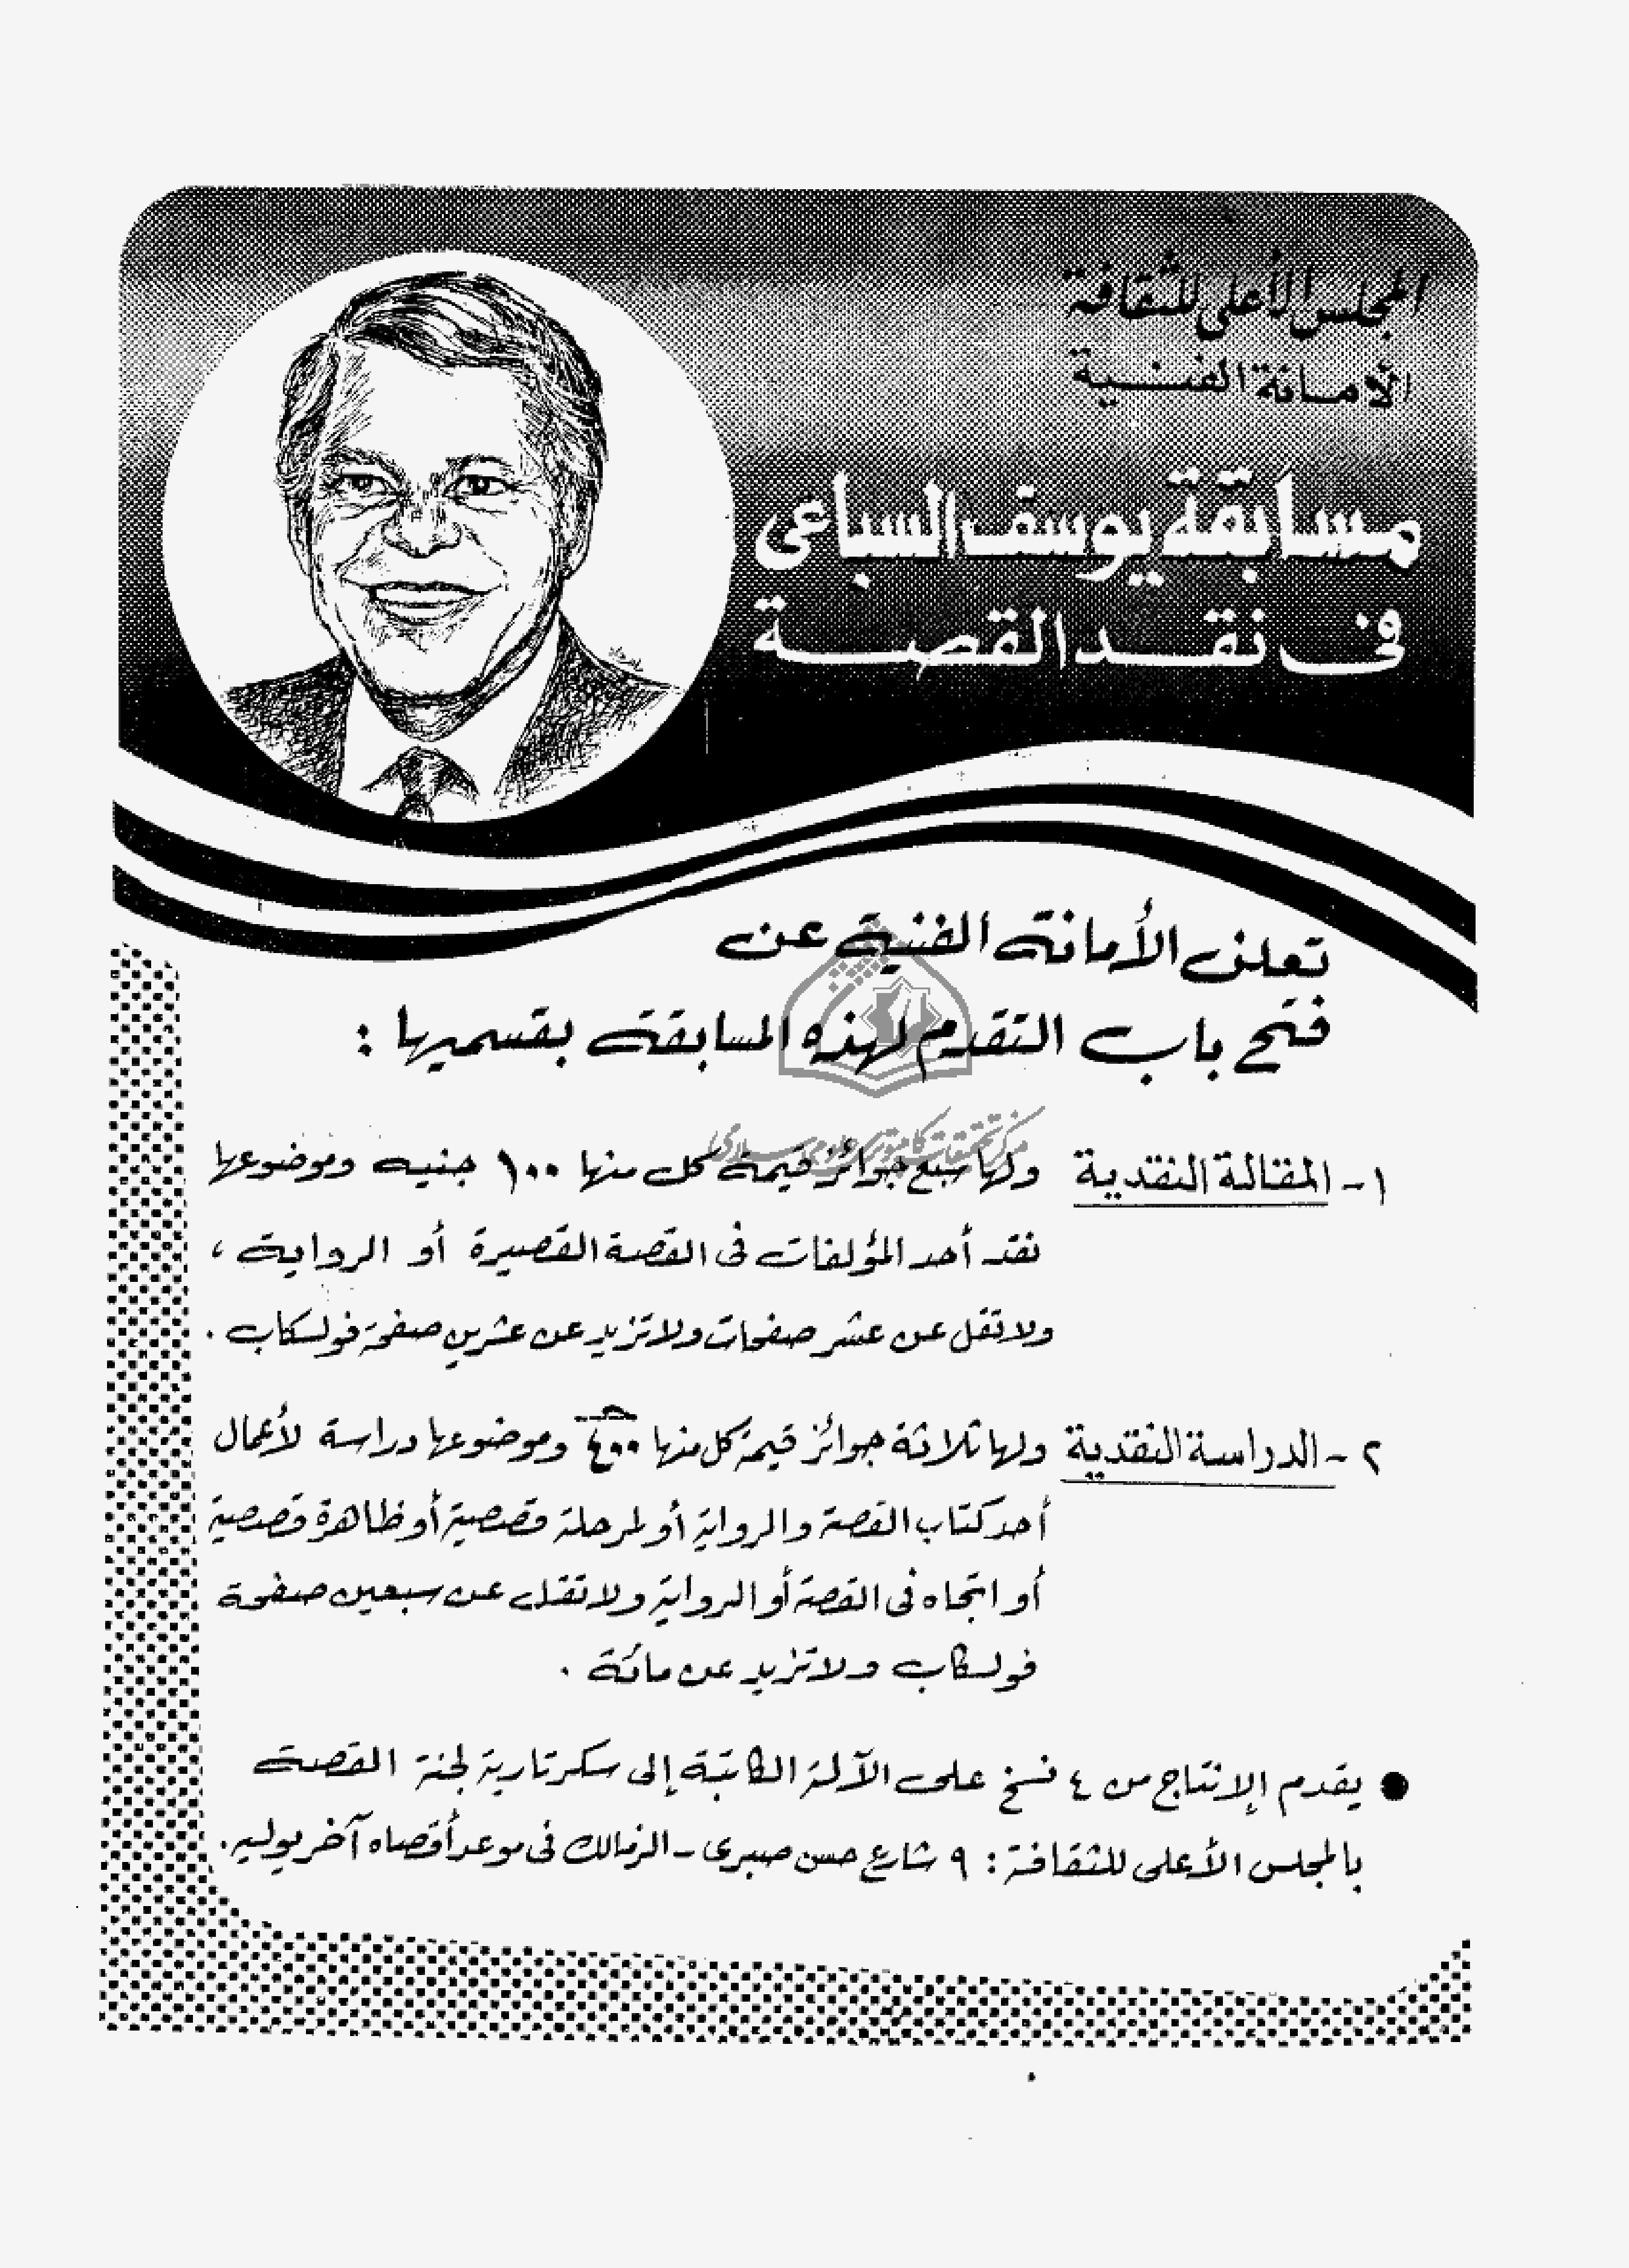 المجلس الأعلى للثقافة
الأمانة الفنية
مسابقة يوسف السباعى
فى نقد القصة
تعلن الأمانة الفنية عن
فتح باب التقدم لهذه المسابقة بقسميها :
١- المقالة النقدية ولها سبع جوائز قيمة كل منها ١٠٠ جنيه وموضوعها
نقد أحد المؤلفات فى القصة القصيرة أو الرواية ،
ولا تقل عن عشر صفحات ولا تزيد عن عشرين صفحة فولسكاب .
٢ - الدراسة النقدية ولها ثلاثة جوائز قيمة كل منها ٤٠٠ جـ وموضوعها دراسة لأعمال
أحد كتاب القصة والرواية أو لمرحلة قصصية أو ظاهرة قصصية
أو اتجاه فى القصة أو الرواية ولا تقل عن سبعين صفحة
فولسكاب ولا تزيد عن مائة .
● يقدم الإنتاج من ٤ نسخ على الآلة الكاتبة إلى سكرتارية لجنة القصة
بالمجلس الأعلى للثقافة : ٩ شارع حسن صبرى - الزمالك فى موعد أقصاه آخر يوليه .
مرکز تحقیقات کامپیوتری علوم اسلامی